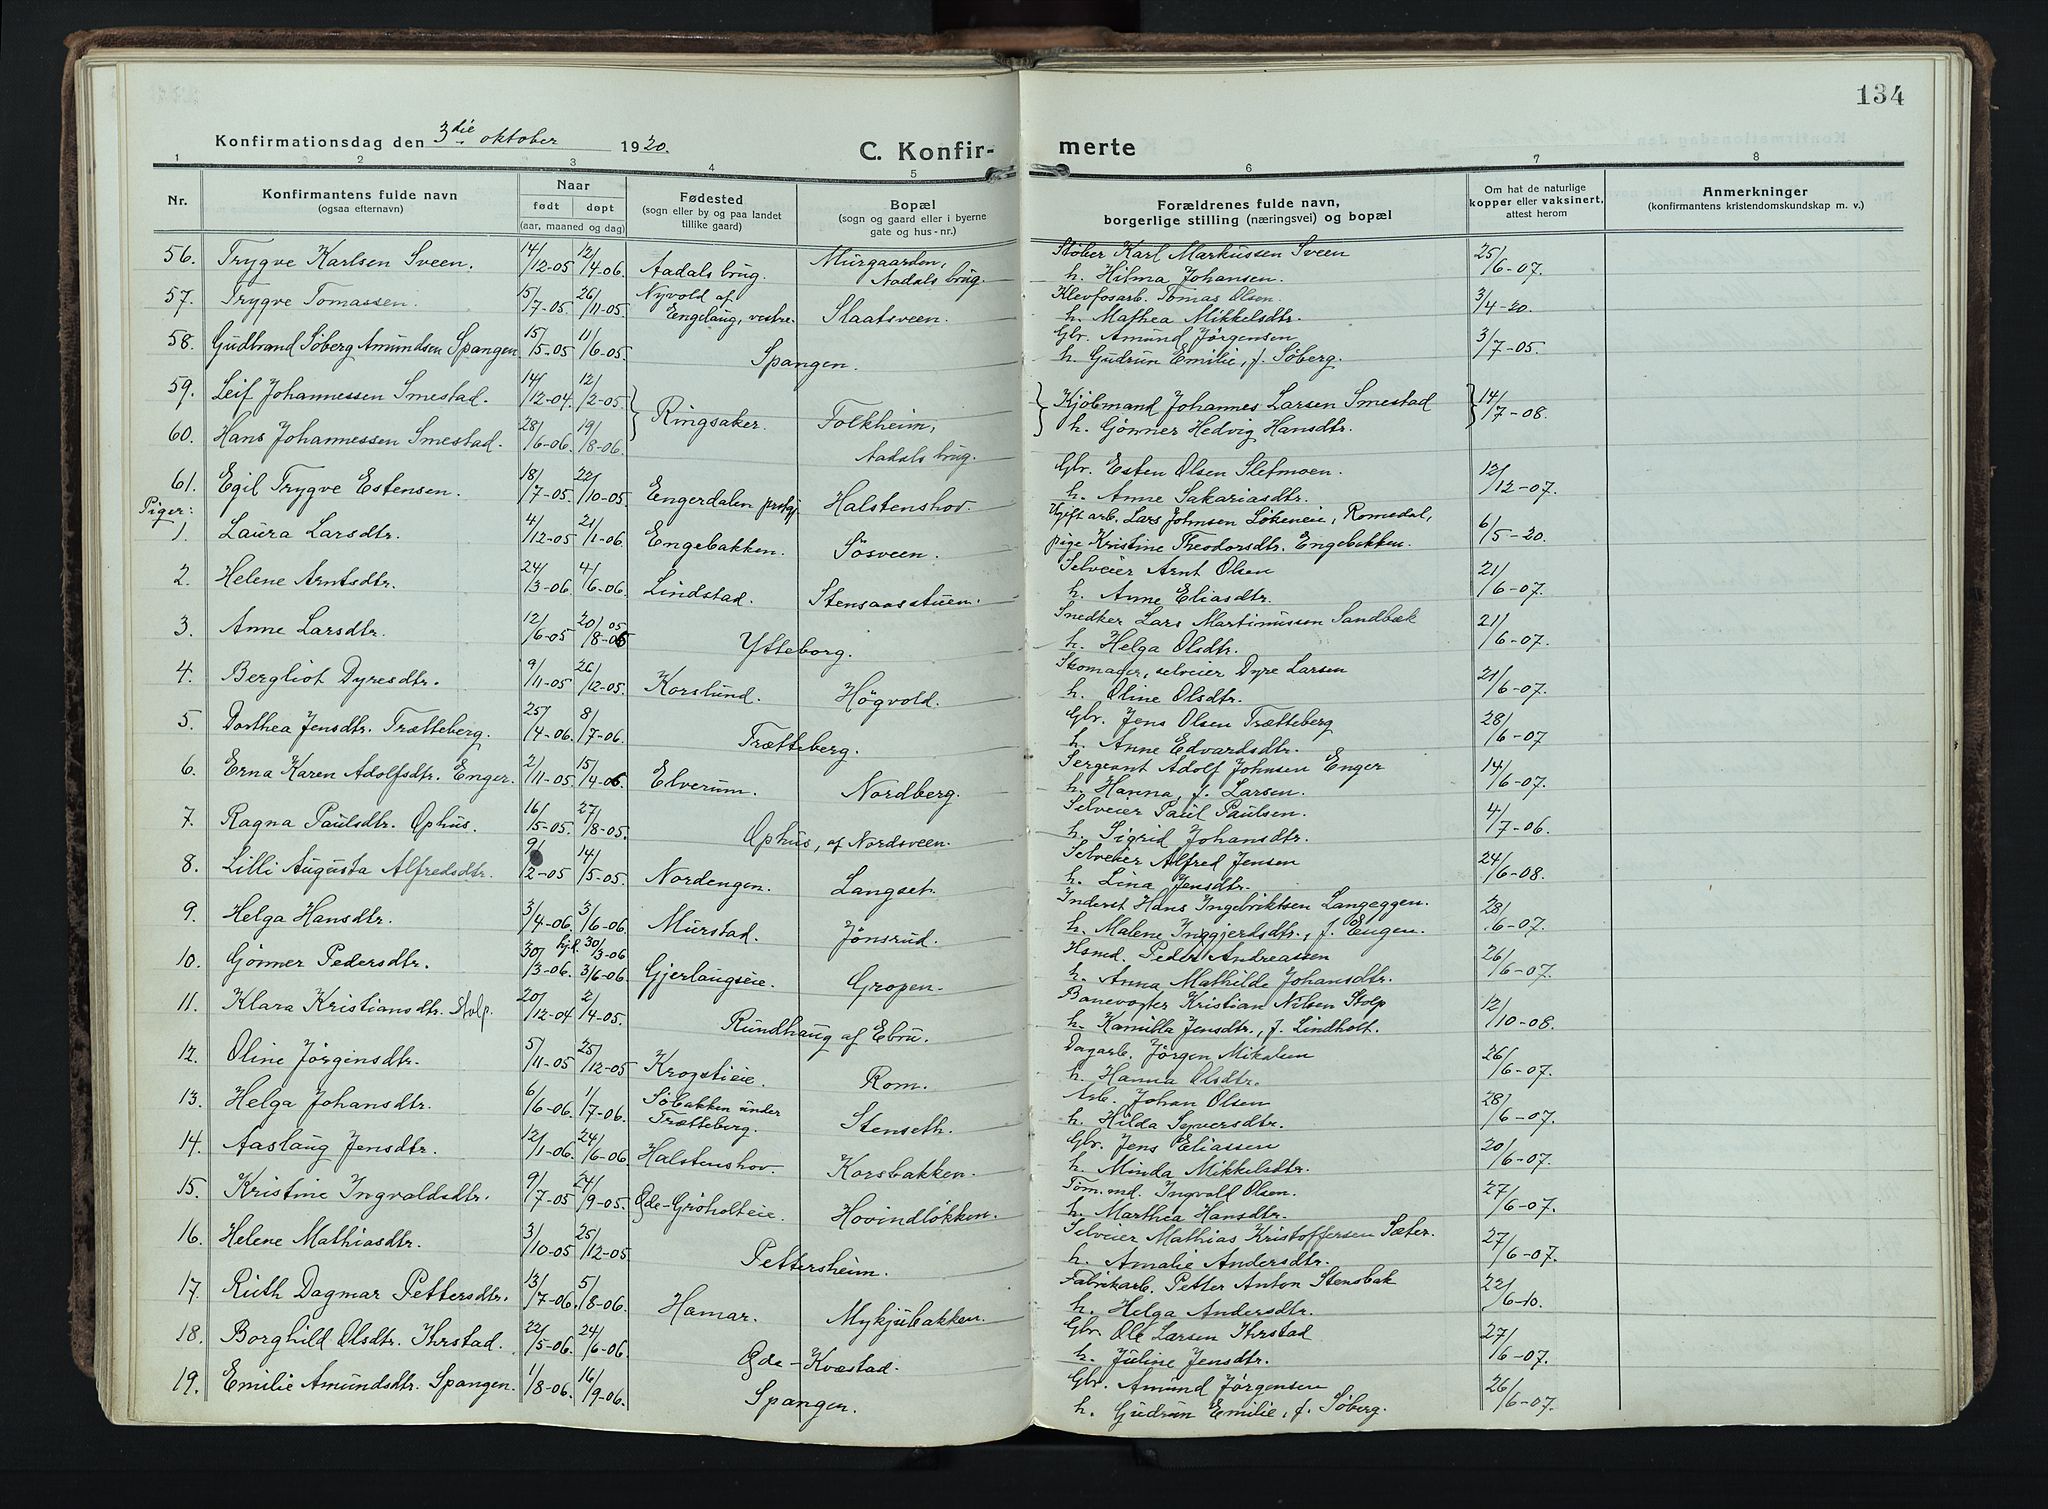 134
Konfirmationsdag den 3die oktober 1920.
C. Konfir- merte
1 2 3 4 5 6 7 8
Nr. Konfirmantens fulde navn (ogsaa efternavn) Naar født døpt (aar, maaned og dag) Fødested (sogn eller by og paa landet tillike gaard) Bopæl (sogn og gaard eller i byerne gate og hus-nr.) Forældrenes fulde navn, borgerlige stilling (næringsvei) og bopæl Om hat de naturlige kopper eller vaksinert, attest herom Anmerkninger (konfirmantens kristendomskundskap m. v.)
56. Trygve Karlsen Sveen. 14/12-05 12/4-06. Aadals brug. Murgaarden, Aadals brug. Støber Karl Markussen Sveen h. Hilma Johansen. 25/6-07.
57. Trygve Tomassen. 15/7-05 26/11-05 Nyvold af Engelaug, vestre. Slaatsveen. Klevfosarb. Tomas Olsen. h. Mathea Mikkelsdtr. 3/4-20.
58. Gudbrand Søberg Amundsen Spangen 15/5-05 11/6-05 Spangen. Gbr. Amund Jørgensen h. Gudrun Emilie, f. Søberg. 3/7-05.
59. Leif Johannessen Smestad. 14/12-04. 12/2-05. Ringsaker. Folkheim, Aadals brug. Kjøbmand Johannes Larsen Smestad h. Gønner Hedvig Hansdtr. 14/7-08.
60. Hans Johannessen Smestad. 28/6-06. 19/8-06.
61. Egil Trygve Estensen. 18/7-05. 22/10-05. Engerdalen prstgj. Halstenshov. Gbr. Esten Olsen Sletmoen. h. Anne Sakariasdtr. 12/12-07.
Piger:
1. Laura Larsdtr. 4/12-05 21/1-06. Engebakken. Søsveen. Ugift arb. Lars Johnsen Løkeneie, Romedal, pige Kristine Theodorsdtr. Engebakken. 6/5-20.
2. Helene Arntsdtr. 24/3-06. 4/6-06. Lindstad. Stensaasstuen. Selveier Arnt Olsen h. Anne Eliasdtr. 21/6-07.
3. Anne Larsdtr. 12/6-05 20/8-05 05 Ytteborg. Snedker Lars Martinussen Sandbæk h. Helga Olsdtr. 21/6-07.
4. Bergliot Dyresdtr. 9/11-05 26/12-05. Korslund. Høgvold. Skomager, selveier Dyre Larsen h. Oline Olsdtr. 21/6-07.
5. Dorthea Jensdtr. Trætteberg. 25/4-06. 8/7-06. Trætteberg. Gbr. Jens Olsen Trætteberg h. Anne Edvardsdtr. 28/6-07
6. Erna Karen Adolfsdtr. Enger. 2/11-05 15/4-06 Elverum. Nordberg. Sergeant Adolf Johnsen Enger h. Hanna, f. Larsen. 14/6-07.
7. Ragna Paulsdtr. Ophus. 16/5-05. 27/8-05. Ophus, af Nordsveen. Selveier Paul Paulsen. h. Sigrid Johansdtr. 4/7-06.
8. Lilli Augusta Alfredsdtr. 9/2-05 14/5-05. Nordengen. Langset. Selveier Alfred Jensen h. Lina Jensdtr. 24/6-08.
9. Helga Hansdtr. 3/4-06. 3/6-06. Murstad. Jønsrud. Inderst Hans Ingebriktsen Langeggen. h. Malene Inggjerdsdtr., f. Engen. 28/6-07.
10. Gønner Pedersdtr. 30/3-06. hjd. 30/3-06 3/6-06 Gjerlaugseie. Gropen. Hsmd. Peder Andreassen h. Anna Mathilde Johansdtr. 26/6-07.
11. Klara Kristiansdtr. Stolp. 20/12-04 2/4-05. Rundhaug af Ebru. Banevogter Kristian Nilsen Stolp h. Kamilla Jensdtr., f. Lindholt. 12/10-08.
12. Oline Jørgensdtr. 5/11-05 25/12-05 Krogstieie. Rom. Dagarb. Jørgen Mikalsen h. Hanna Olsdtr. 26/6-07.
13. Helga Johansdtr. 6/6-06. 1/7-06. Søbakken under Trætteberg. Stenseth. Arb. Johan Olsen h. Hilda Syversdtr. 28/6-07.
14. Aaslaug Jensdtr. 12/1-06. 24/6-06. Halstenshov. Korsbakken. Gbr. Jens Eliassen h. Minda Mikkelsdtr. 20/6-07.
15. Kristine Ingvaldsdtr. 9/7-05 24/9-05. Øde-Grøholteie. Hovindløkken. Tøm.md. Ingvald Olsen. h. Marthea Hansdtr. 27/6-07.
16. Helene Mathiasdtr. 3/10-05 25/12-05 Pettersheim. Selveier Mathias Kristoffersen Sæter. h. Amalie Andersdtr. 27/6-07.
17. Ruth Dagmar Pettersdtr. 13/7-06. 5/8-06. Hamar. Mykjubakken. Fabrikarb. Petter Anton Stensbak h. Helga Andersdtr. 22/6-10.
18. Borghild Olsdtr. Ihrstad. 22/5-06. 24/6-06. Øde-Kvæstad. Gbr. Ole Larsen Ihrstad h. Juline Jensdtr. 27/6-07.
19. Emilie Amundsdtr. Spangen. 1/8-06. 16/9-06. Spangen. Gbr. Amund Jørgensen h. Gudrun Emilie, f. Søberg. 26/6-07.